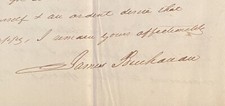 & an ardent desire that
I remain yours affectionately
James Buchanan